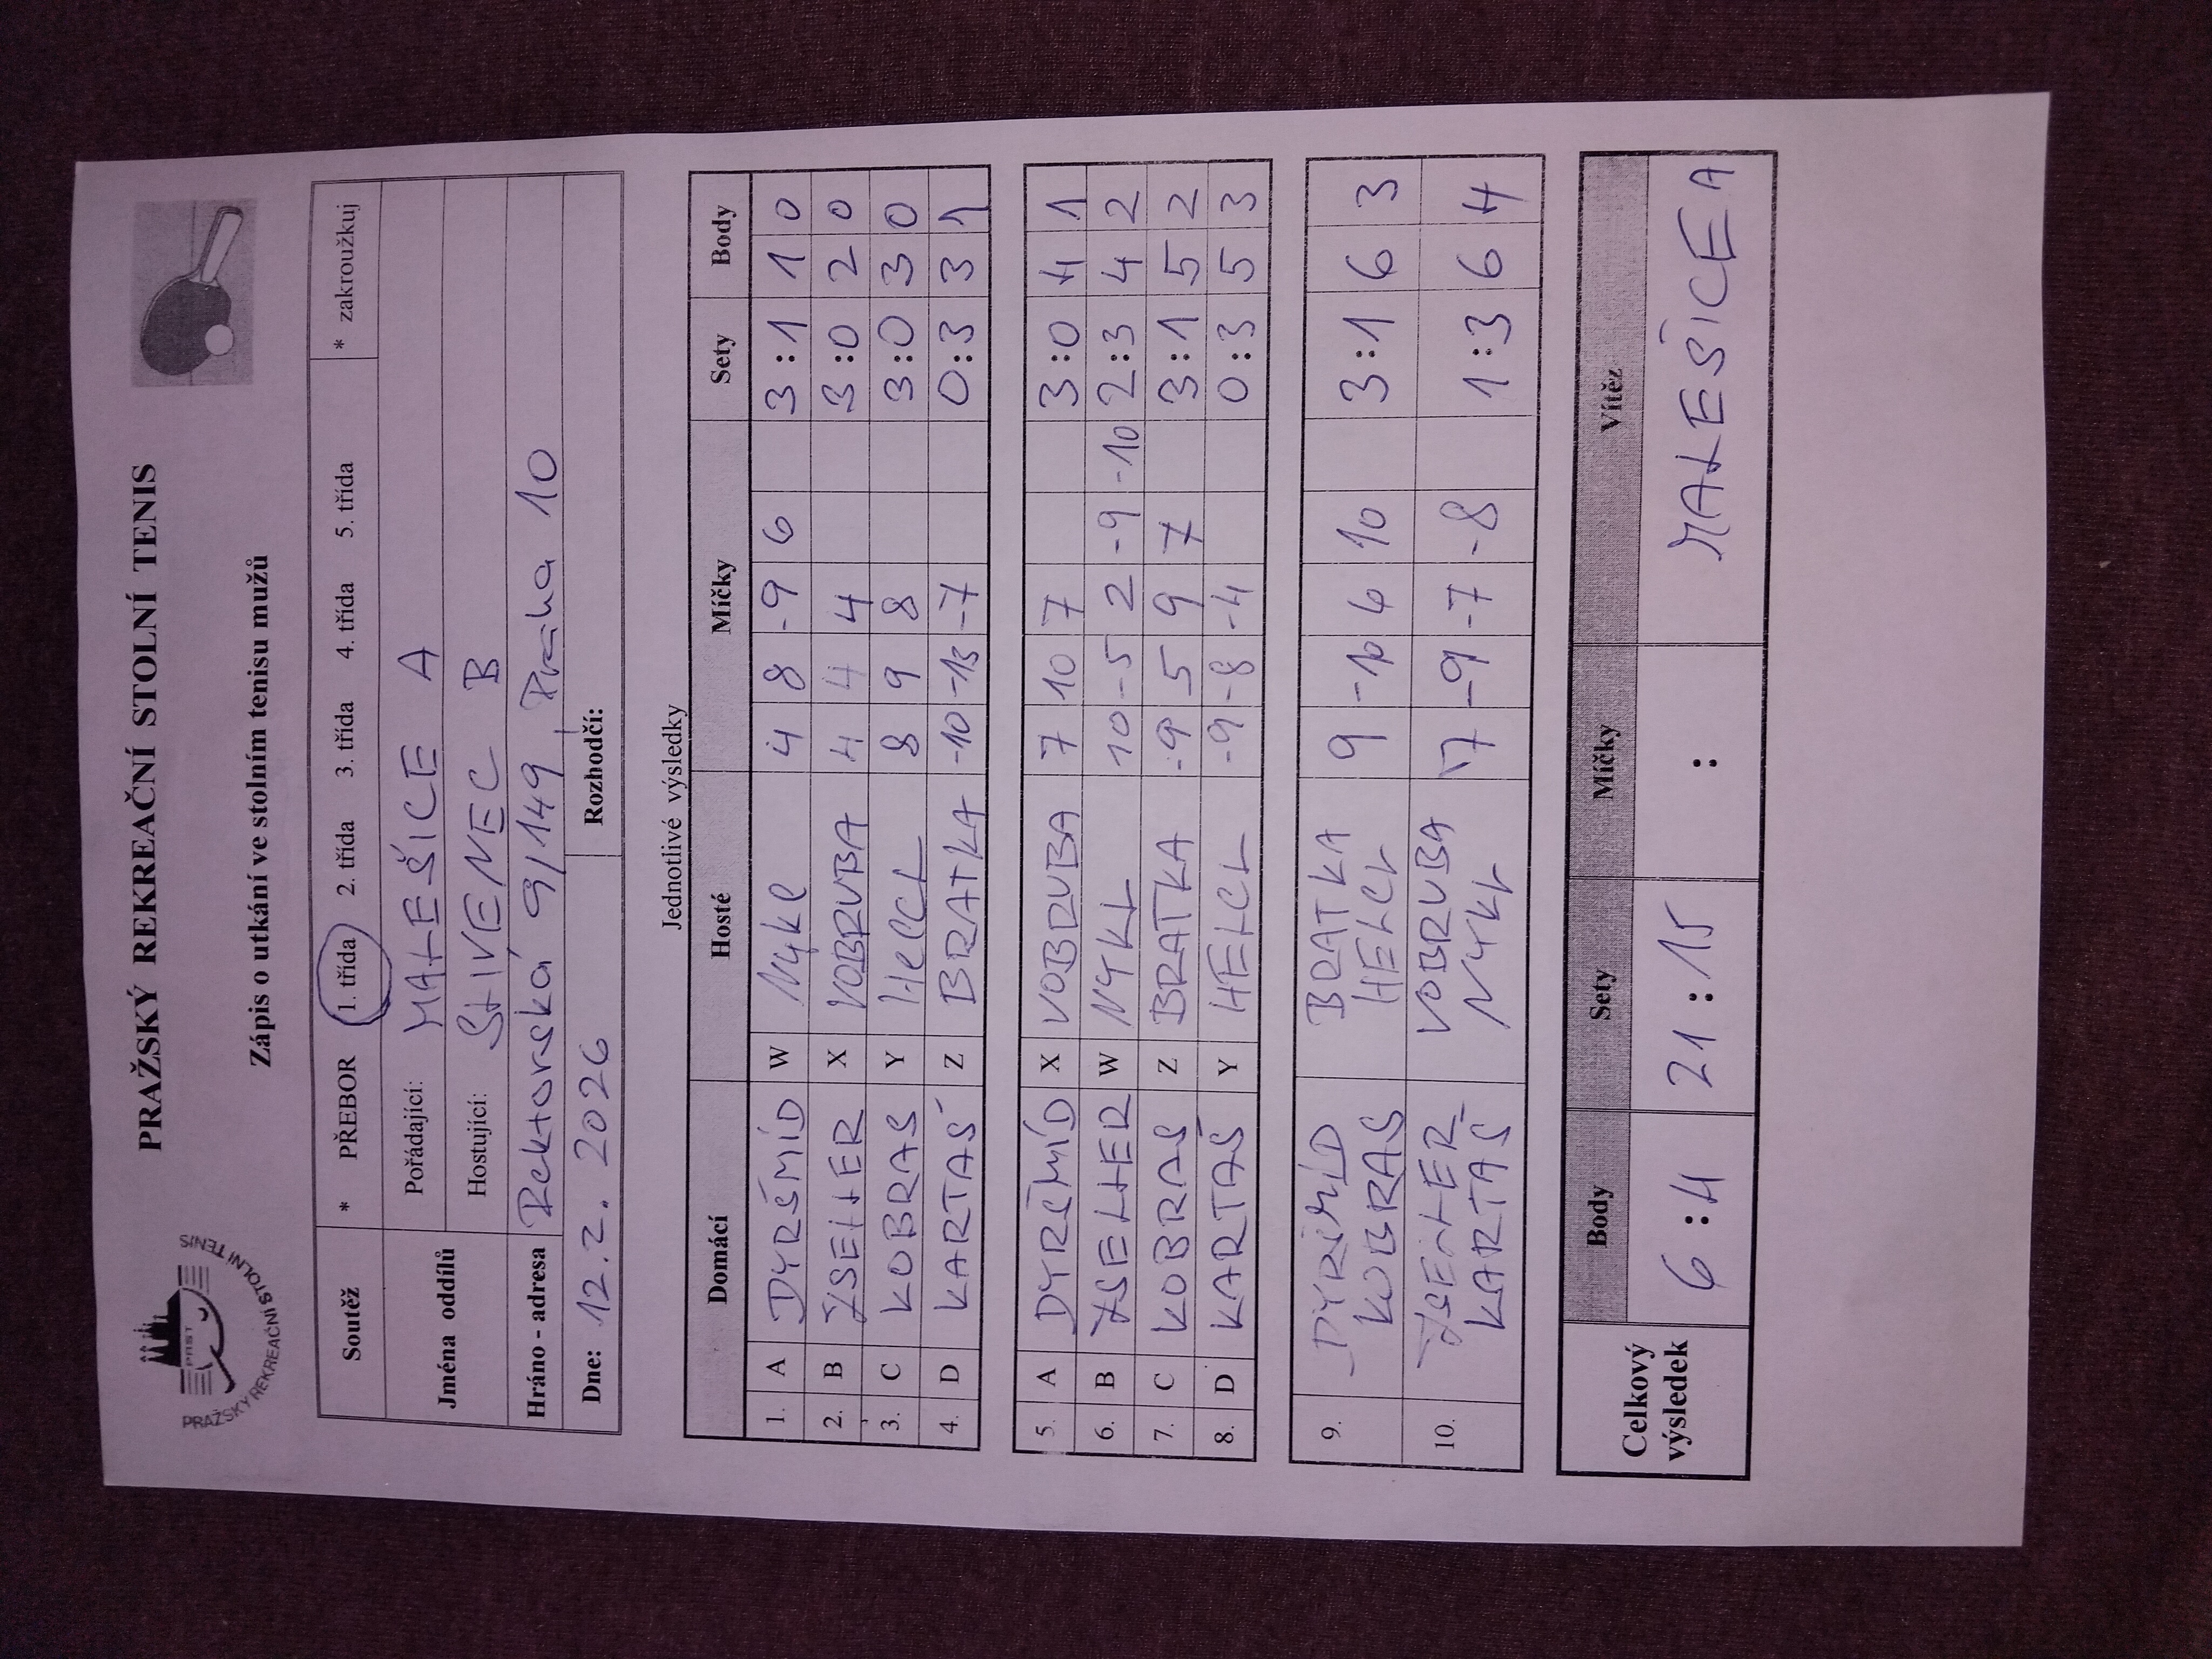 PRAŽSKÝ REKREAČNÍ STOLNÍ TENIS
PRST
PRAŽSKÝ REKREAČNÍ STOLNÍ TENIS
Zápis o utkání ve stolním tenisu mužů
Soutěž * PŘEBOR 1. třída 2. třída 3. třída 4. třída 5. třída * zakroužkuj
Jména oddílů
Pořádající: MALEŠICE A
Hostující: SLIVENEC B
Hráno - adresa Rektorská 9/149, Praha 10
Dne: 12.2.2026 Rozhodčí:
Jednotlivé výsledky
Domácí Hosté Míčky Sety Body
1. A DYRŠMÍD W Nykl 4 8 -9 6 3:1 1 0
2. B ŽSELLER X VOBRUBA 4 4 4 3:0 2 0
3. C KOBRAS Y HELCL 8 9 8 3:0 3 0
4. D KARTAŠ Z BRATKA -10 -13 -7 0:3 3 1
5. A DYRŠMÍD X VOBRUBA 7 10 7 3:0 4 1
6. B ŽSELLER W NYKL 10 -5 2 -9 -10 2:3 4 2
7. C KOBRAS Z BRATKA -9 5 9 7 3:1 5 2
8. D KARTAŠ Y HELCL -9 -8 -4 0:3 5 3
9. DYRŠMÍD BRATKA 9 -10 6 10 3:1 6 3
KOBRAS HELCL
10. ŽSELLER VOBRUBA 7 -9 -7 -8 1:3 6 4
KARTAŠ NYKL
Celkový výsledek Body Sety Míčky Vítěz
6:4 21:15 : MALEŠICE A